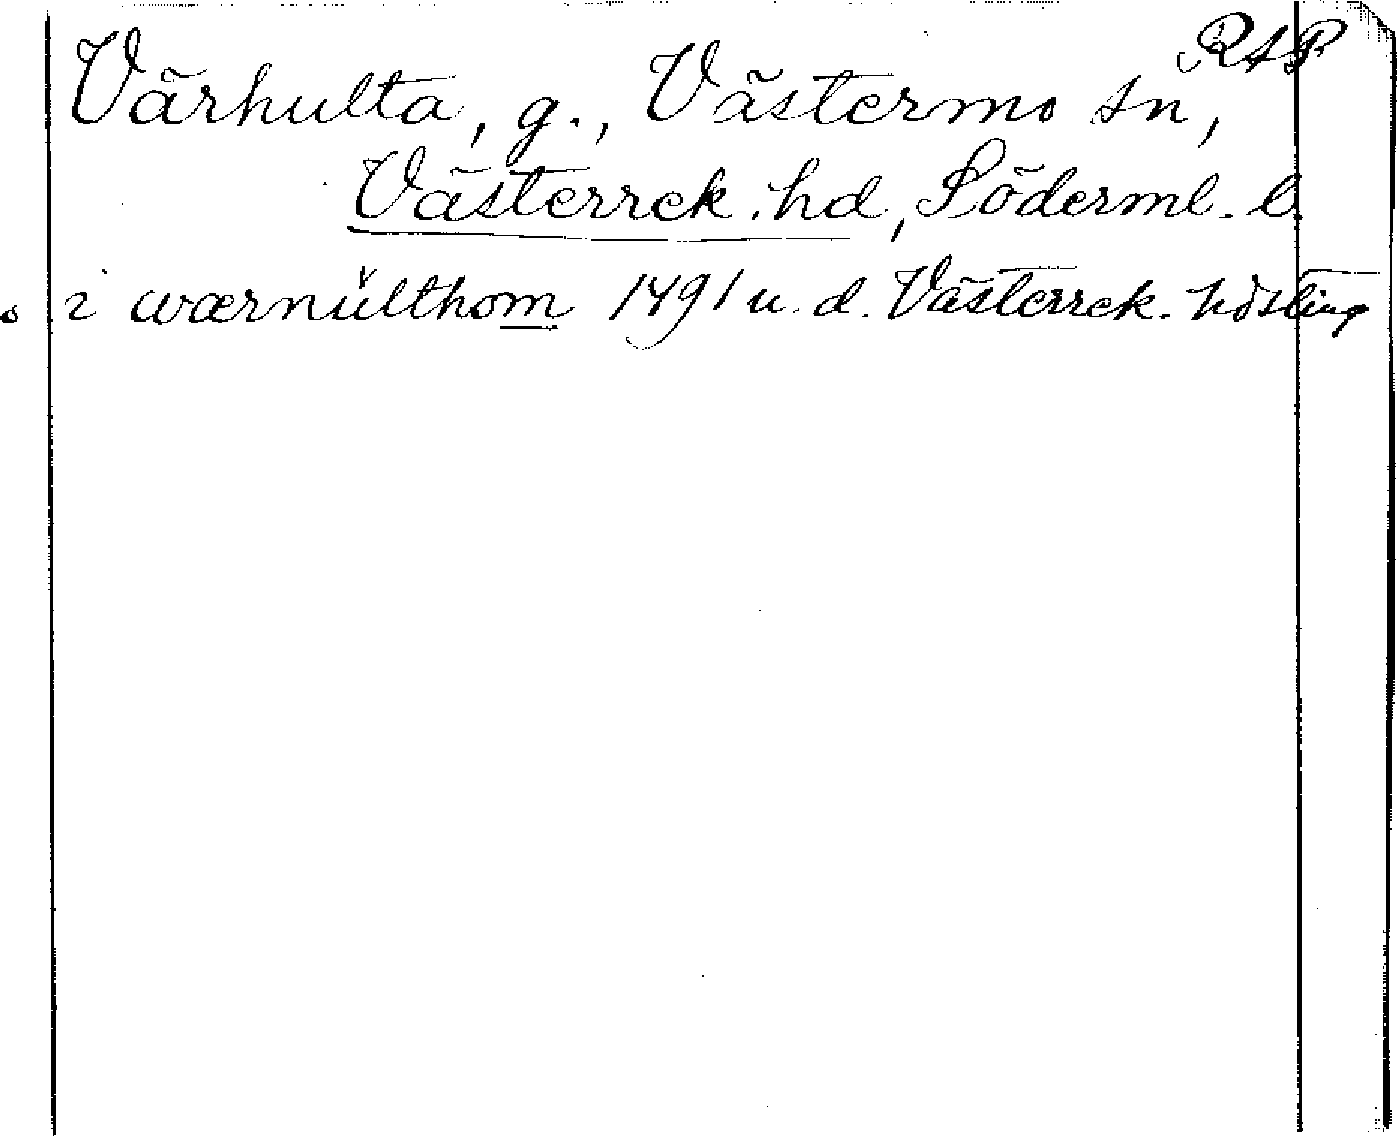 RAP
Värhulta, g., Västermo sn,
Västerrek. hd, Söderml. l.
o i wærnŭlthom 1491 u. d. Västerrek. hdsting